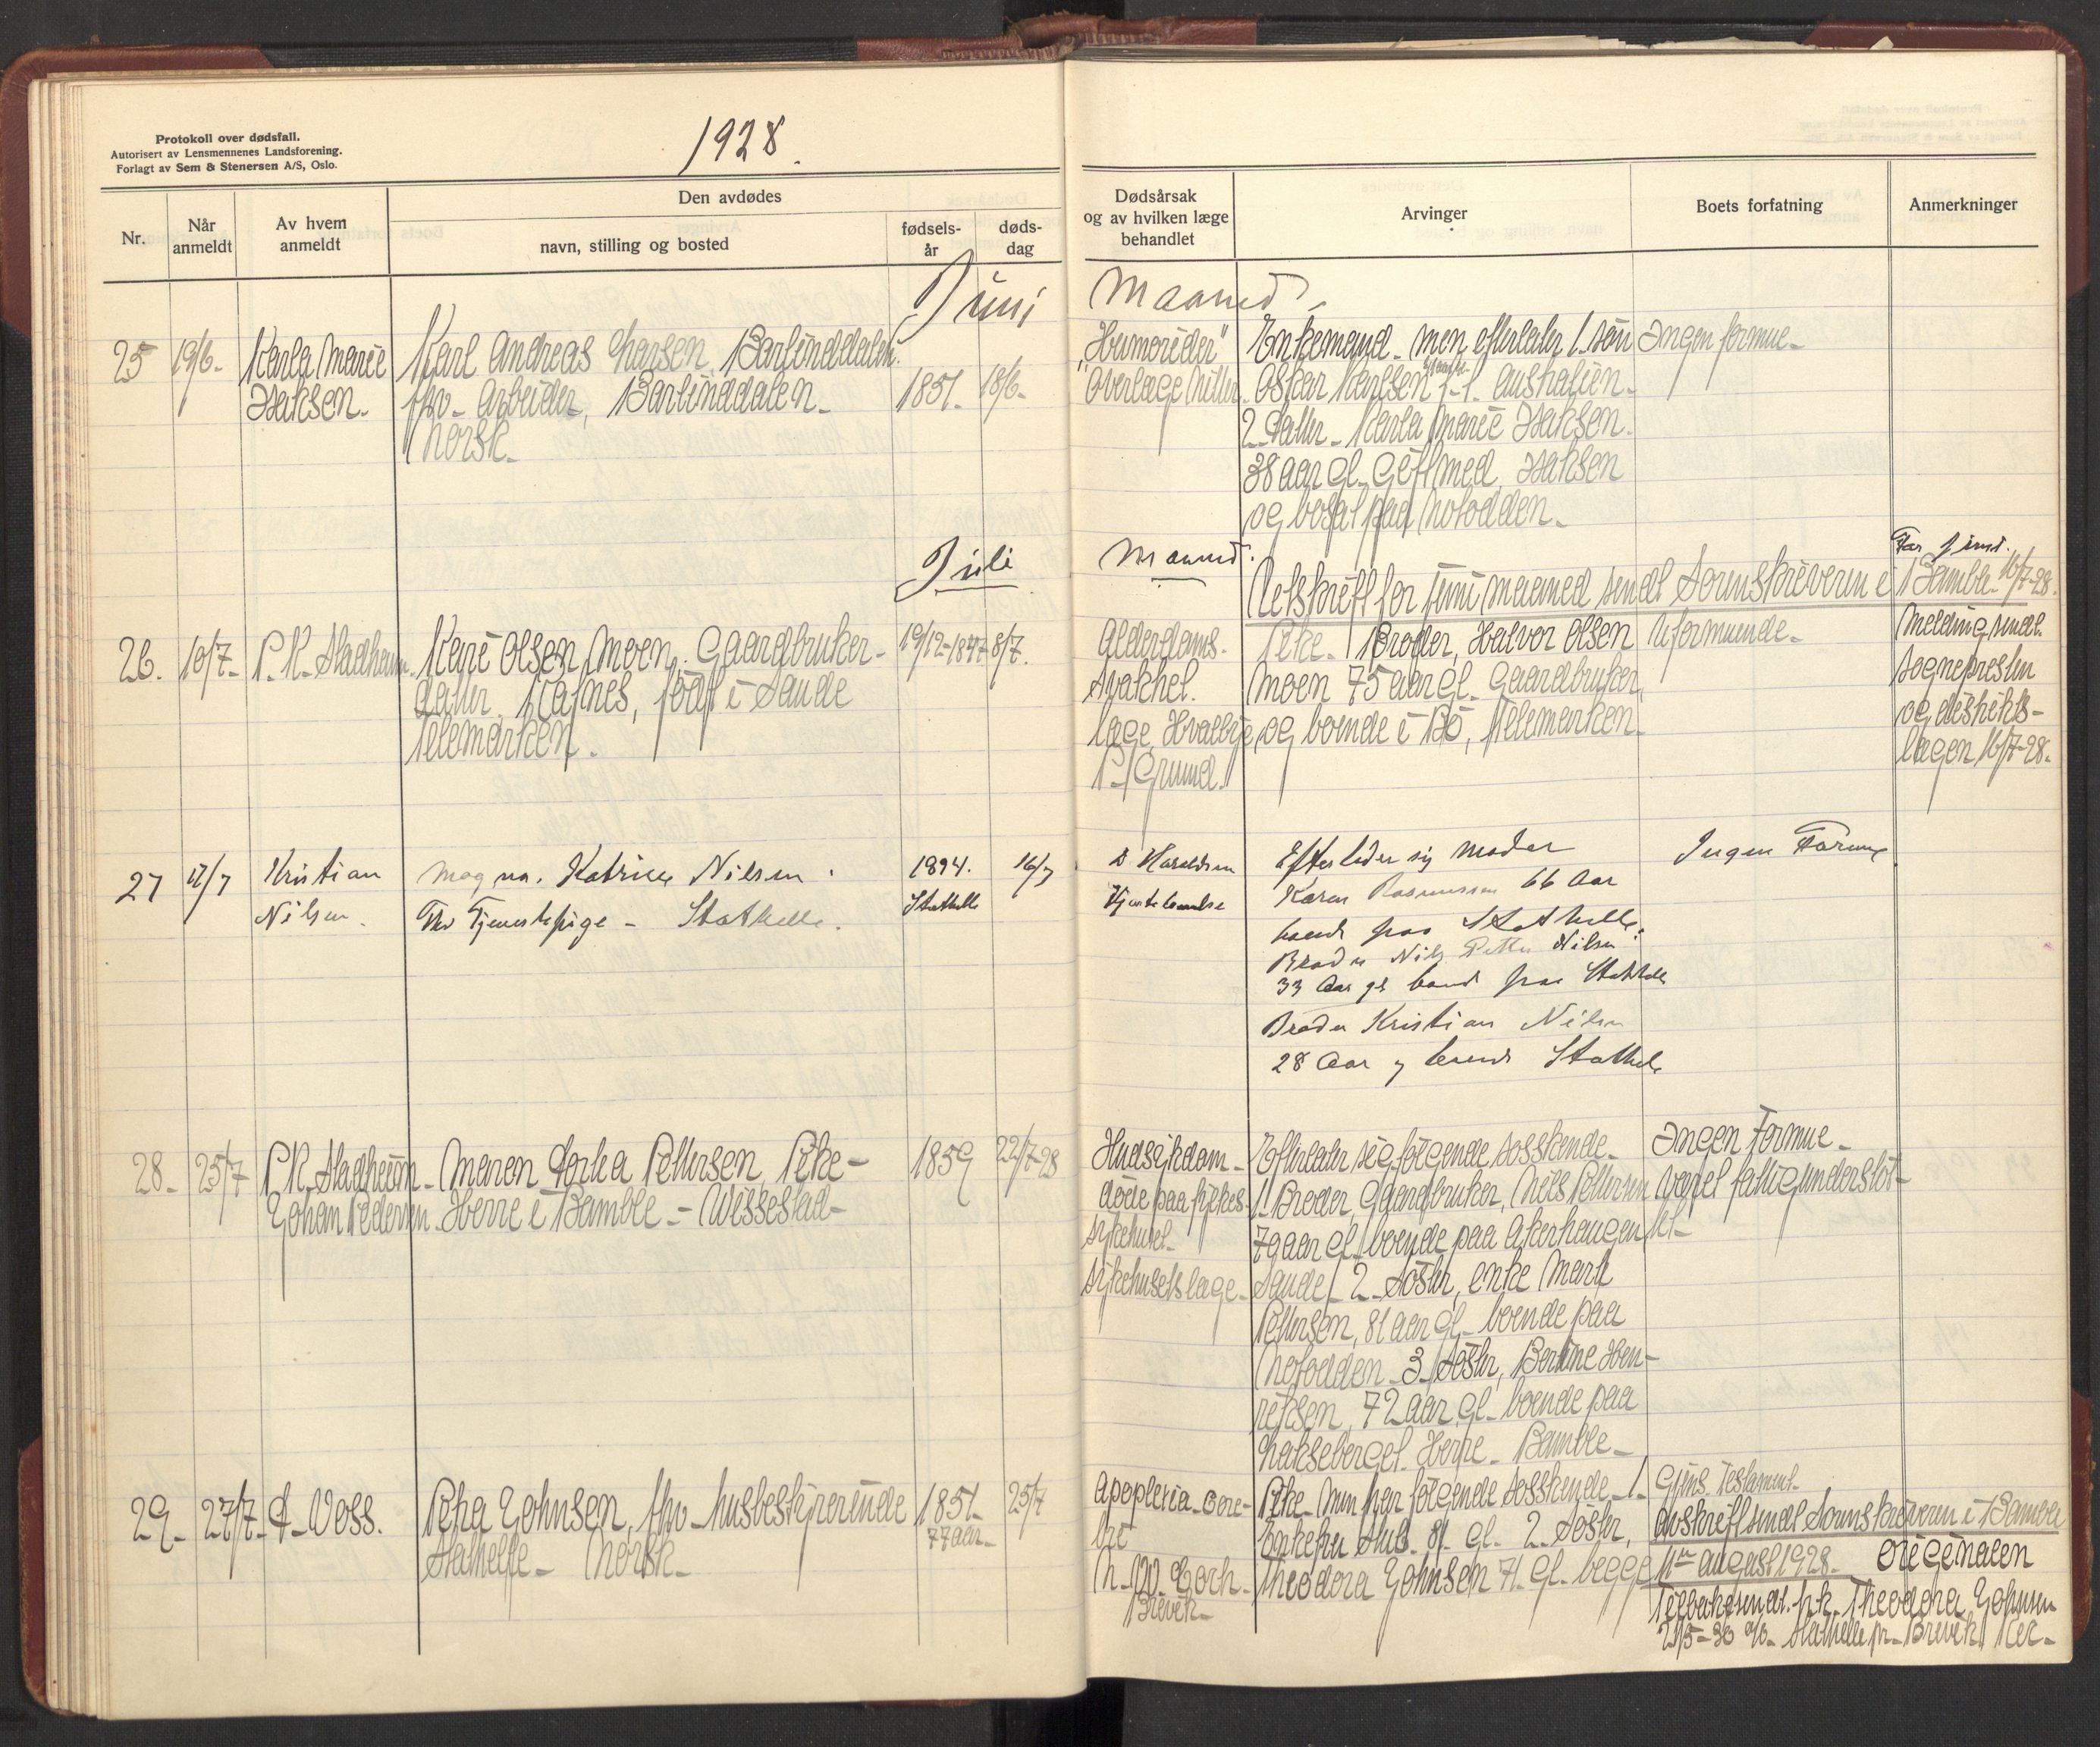 Protokoll over dødsfall.
Autorisert av Lensmennenes Landsforening.
Forlagt av Sem & Stenersen A/S, Oslo.
1928.
Nr.
Når anmeldt
Av hvem anmeldt
Den avdødes
navn, stilling og bosted
fødselsår
dødsdag
Dødsårsak
og av hvilken læge
behandlet
Arvinger
Boets forfatning
Anmerkninger
Juni Maaned
25 19/6- Karla Marie
Isaksen-
Karl Andreas Larsen, Barlinddalen.
fhv- Arbeider, Barlinddalen-
Norsk-
1851- 18/6-
"Humorider"
Overlæge
Enkemand- men efterlater 1. sön
Oskar Karlsen f-t. Australien-
2- datter- Karla Marie Isaksen-
38 aar gl- Gift med Isaksen
og bosat paa Notodden-
Ingen formue-
Juli Maaned.
Utskrift for juni maaned sendt Sorenskriveren i Bamble 16/7-28.
26. 10/7- P. K. Stadheim-
Kari Olsen Moen, Gaardbruker-
datter, Rafnes, født i Sande
Telemarken.
19/12-1847- 8/7.
Alderdoms-
svakhet.
læge Hvalbye
P. Grund.
Pike- 1 Broder, Halvor Olsen
Moen 75 aar gl. Gaardbruker
og boende i Bö, Telemarken-
Uformuende-
Melding sendt
sognepresten
og distrikts-
lægen 16/7-28-
27 17/7 Kristian
Nilsen-
Magna. Katrine Nilsen.
fhv Tjenestepige- Stathelle.
1894. 16/7
Stathelle
D Haraldsen
Hjertelammelse
Efterlader sig Moder
Karen Rasmussen 66 Aar
boende paa Stathelle.
Broder Nils Petter Nilsen
33 Aar gl boend paa Stathelle
Broder Kristian Nilsen
28 Aar boend Stathelle
Ingen Formue
28- 25/7 P. K. Stadheim-
Johan Pedersen-
Maren Dorthea Pettersen, Pike-
Herre i Bamble-
1859 22/7-28
Hudsykdom-
døde paa fylkes-
sykehuset-
sykehusets læge-
Efterlater sig følgende søsskende-
1. Broder, Gaardbruker, Nils Pettersen
79 aar gl- boende paa Akerhaugen
Sande- 2- Søster, enke Marte
Pettersen, 81 aar gl- boende paa
Notodden- 3- Søster, Bertine Hen-
riksen, 72 aar gl- boende paa
Laksberget Herre- Bamble-
Ingen Formue-
været fattigunderstöt-
tet-
29- 27/7- A- Voss.
Petra Johnsen, fhv- husbestyrerinde
Stathelle- Norsk-
1851- 25/7
77 aar-
Apoplexia- cere-
bri
Brevik-
Pike- Nun har følgende søsskende- 1-
Enkefru gl. 2- Søster,
Theodora Johnsen 71. gl- begge
Gjens. Testament-
avskrift sendt Sorenskriveren i Bamble
august 1928- originalen
Tilbakesendt. frk- Theodora Johnsen
21/5-30 Stathelle pr- Brevik Rec-